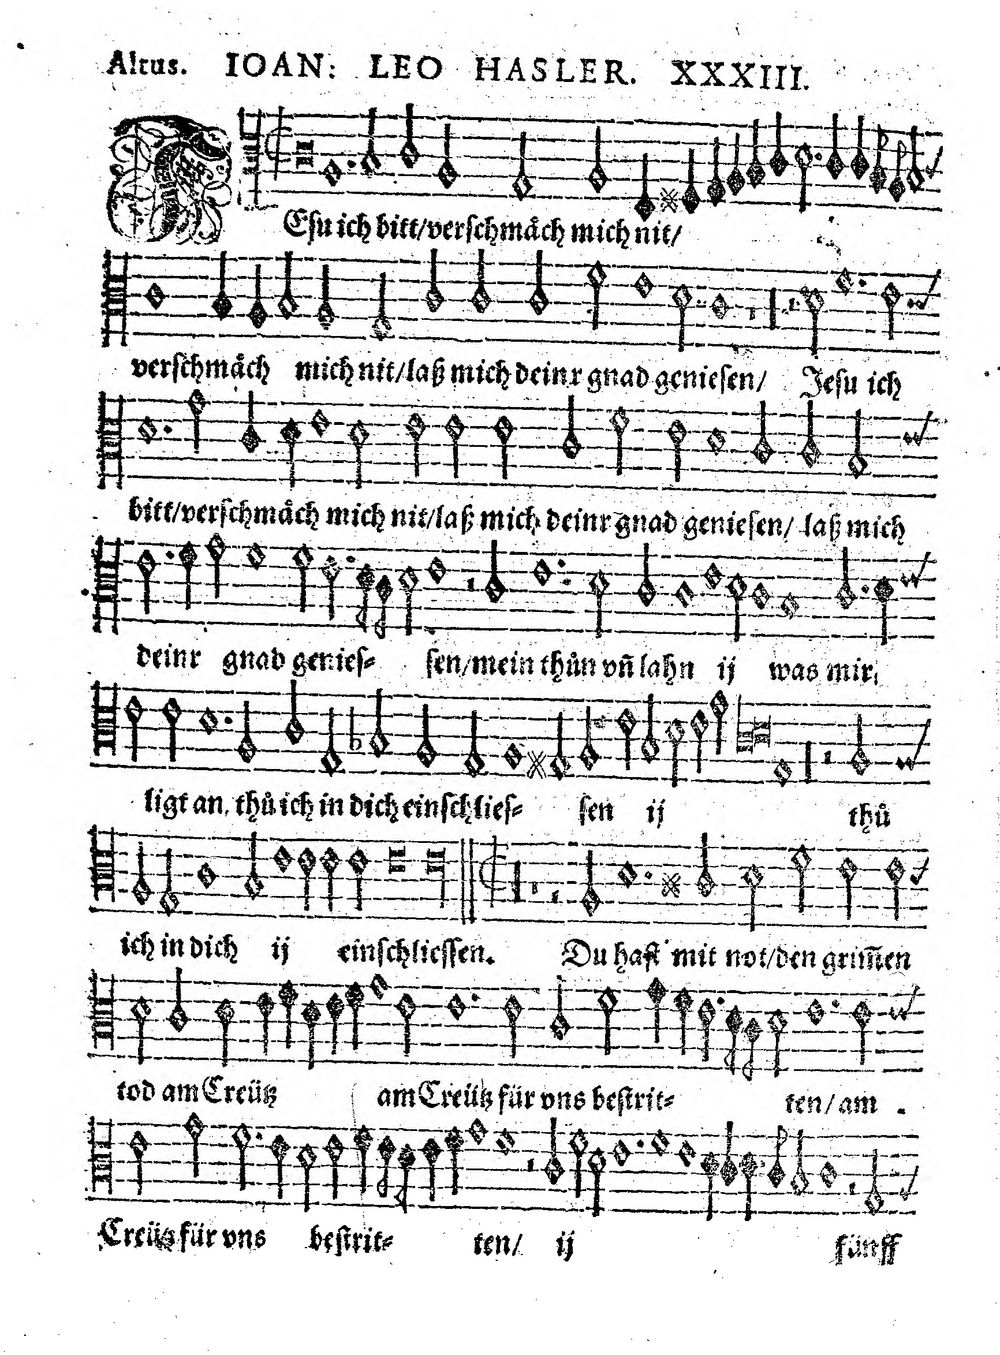 Altus. IOAN: LEO HASLER. XXXIII.
JEsu ich bitt/verschmåch mich nit/
verschmåch mich nit/laß mich deinr gnad geniesen/ Jesu ich
bitt/verschmåch mich nit/laß mich deinr gnad geniesen/ laß mich
deinr gnad genies- sen/mein thůn vñ lahn ij was mir
ligt an, thů ich in dich einschlies- sen ij thů
ich in dich ij einschliessen. Du hast mit not/den grim̃en
tod am Creütz am Creütz für vns bestrit- ten/ am
Creütz für vns bestrit- ten/ ij fünff